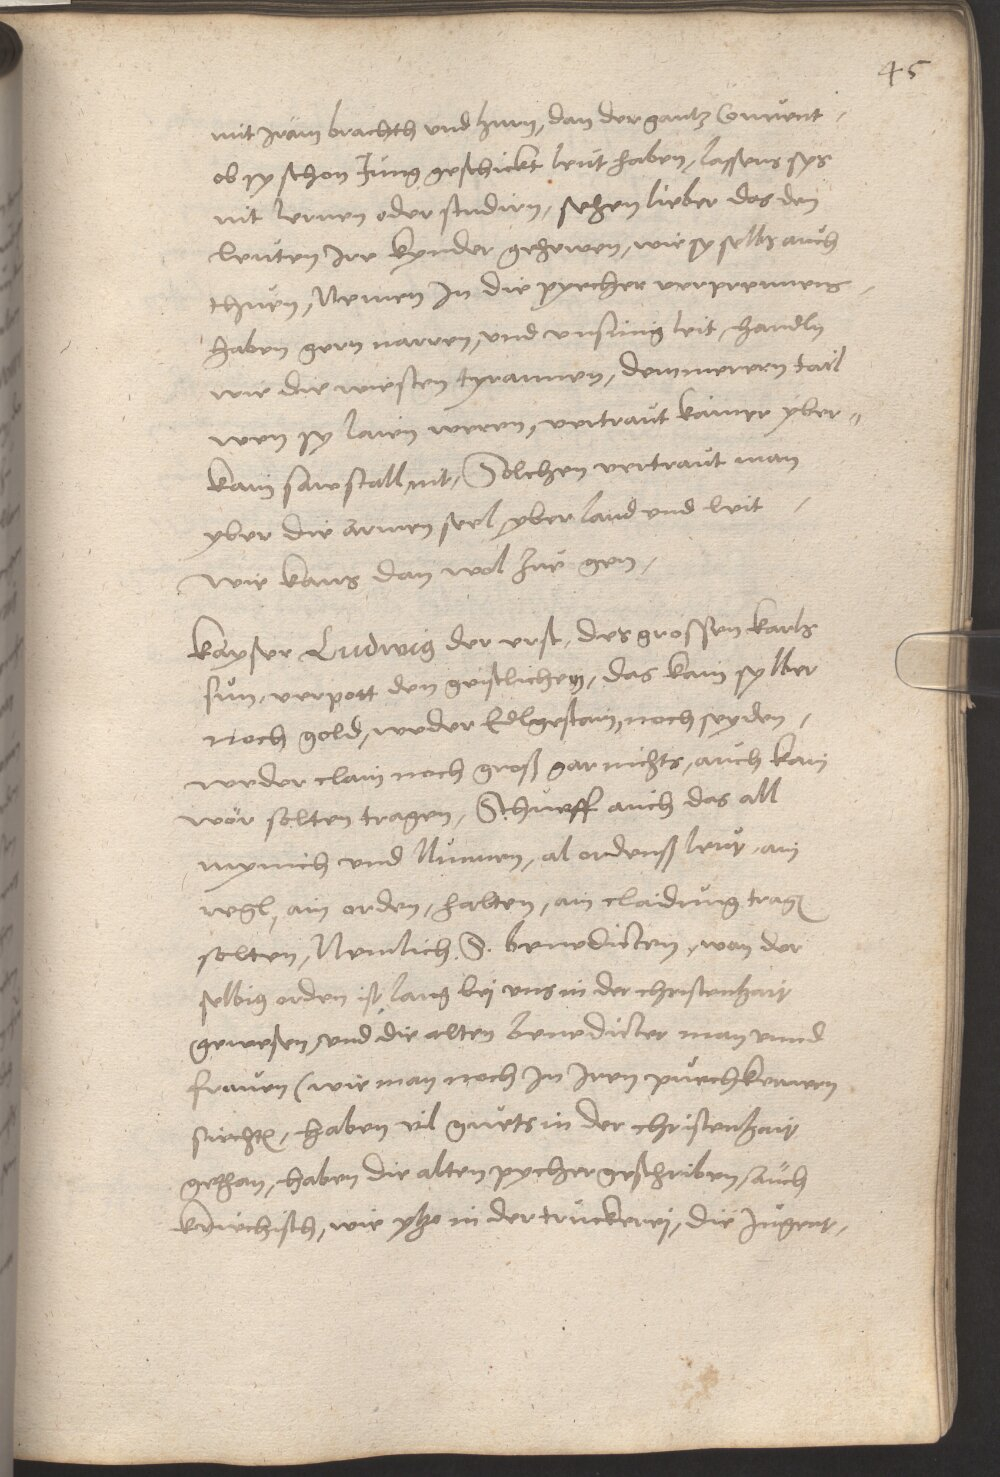 45
mit iräm brachth und huen, dan der gantz Convent,
ob sy schon Jung geschickt leut haben, lassens sys
nit lernen oder studirn, sehen lieber das den
leuten Ire kynder geheuen, wie sy selbs auch
thuen, Nemen In die pyecher verprennens,
haben gern narren, und unsinig leit, handln
wie die wiesten tyrannen, dem merern tail
wen sy laien weren, vertraut kainer yber
kain sawstall nit, Solchen vertraut man
yber die armen seel yber land und leit,
wie kans dan wol zue gen,
Kayser Ludwig der erst, des grossen karls
sun, verpott den geistlichen, das kain sylber
noch gold, weder Edlgestain, noch seyden,
weder clain noch groß gar nichts, auch kain
wör solten tragen, Schueff auch das all
mynich und Nunnen, al ordenß leut, ain
regl, ain orden, halten, ain claidung tragen
solten, Nemlich S. benedicten, wan der
selbig orden ist lang bei uns in der christenhait
gewesen, und die alten benedicter man unnd
frauen (wie man noch In Iren puechkemern
siecht), haben vil guets in der christenhait
gethan, haben die alten pycher geschriben, auch
kriechisch, wie ytzo in der truckerei, die Jugent,